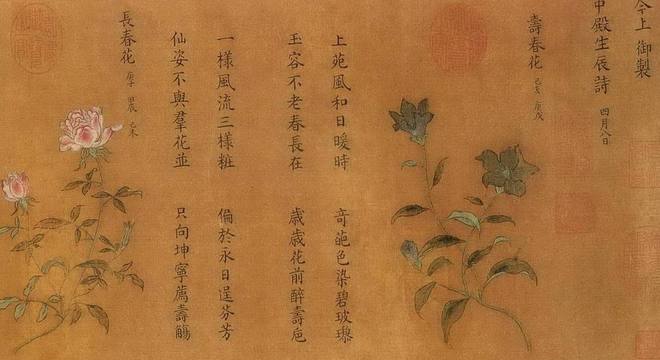 今上 御製
中殿生辰詩 四月八日
壽春花 己亥 庚戌
上苑風和日暖時 奇葩色染碧玻瓈
玉容不老春長在 歲歲花前醉壽卮
一樣風流三樣粧 偏於永日逞芬芳
仙姿不與羣花並 只向坤寧薦壽觴
長春花 庚子 甲辰 乙未